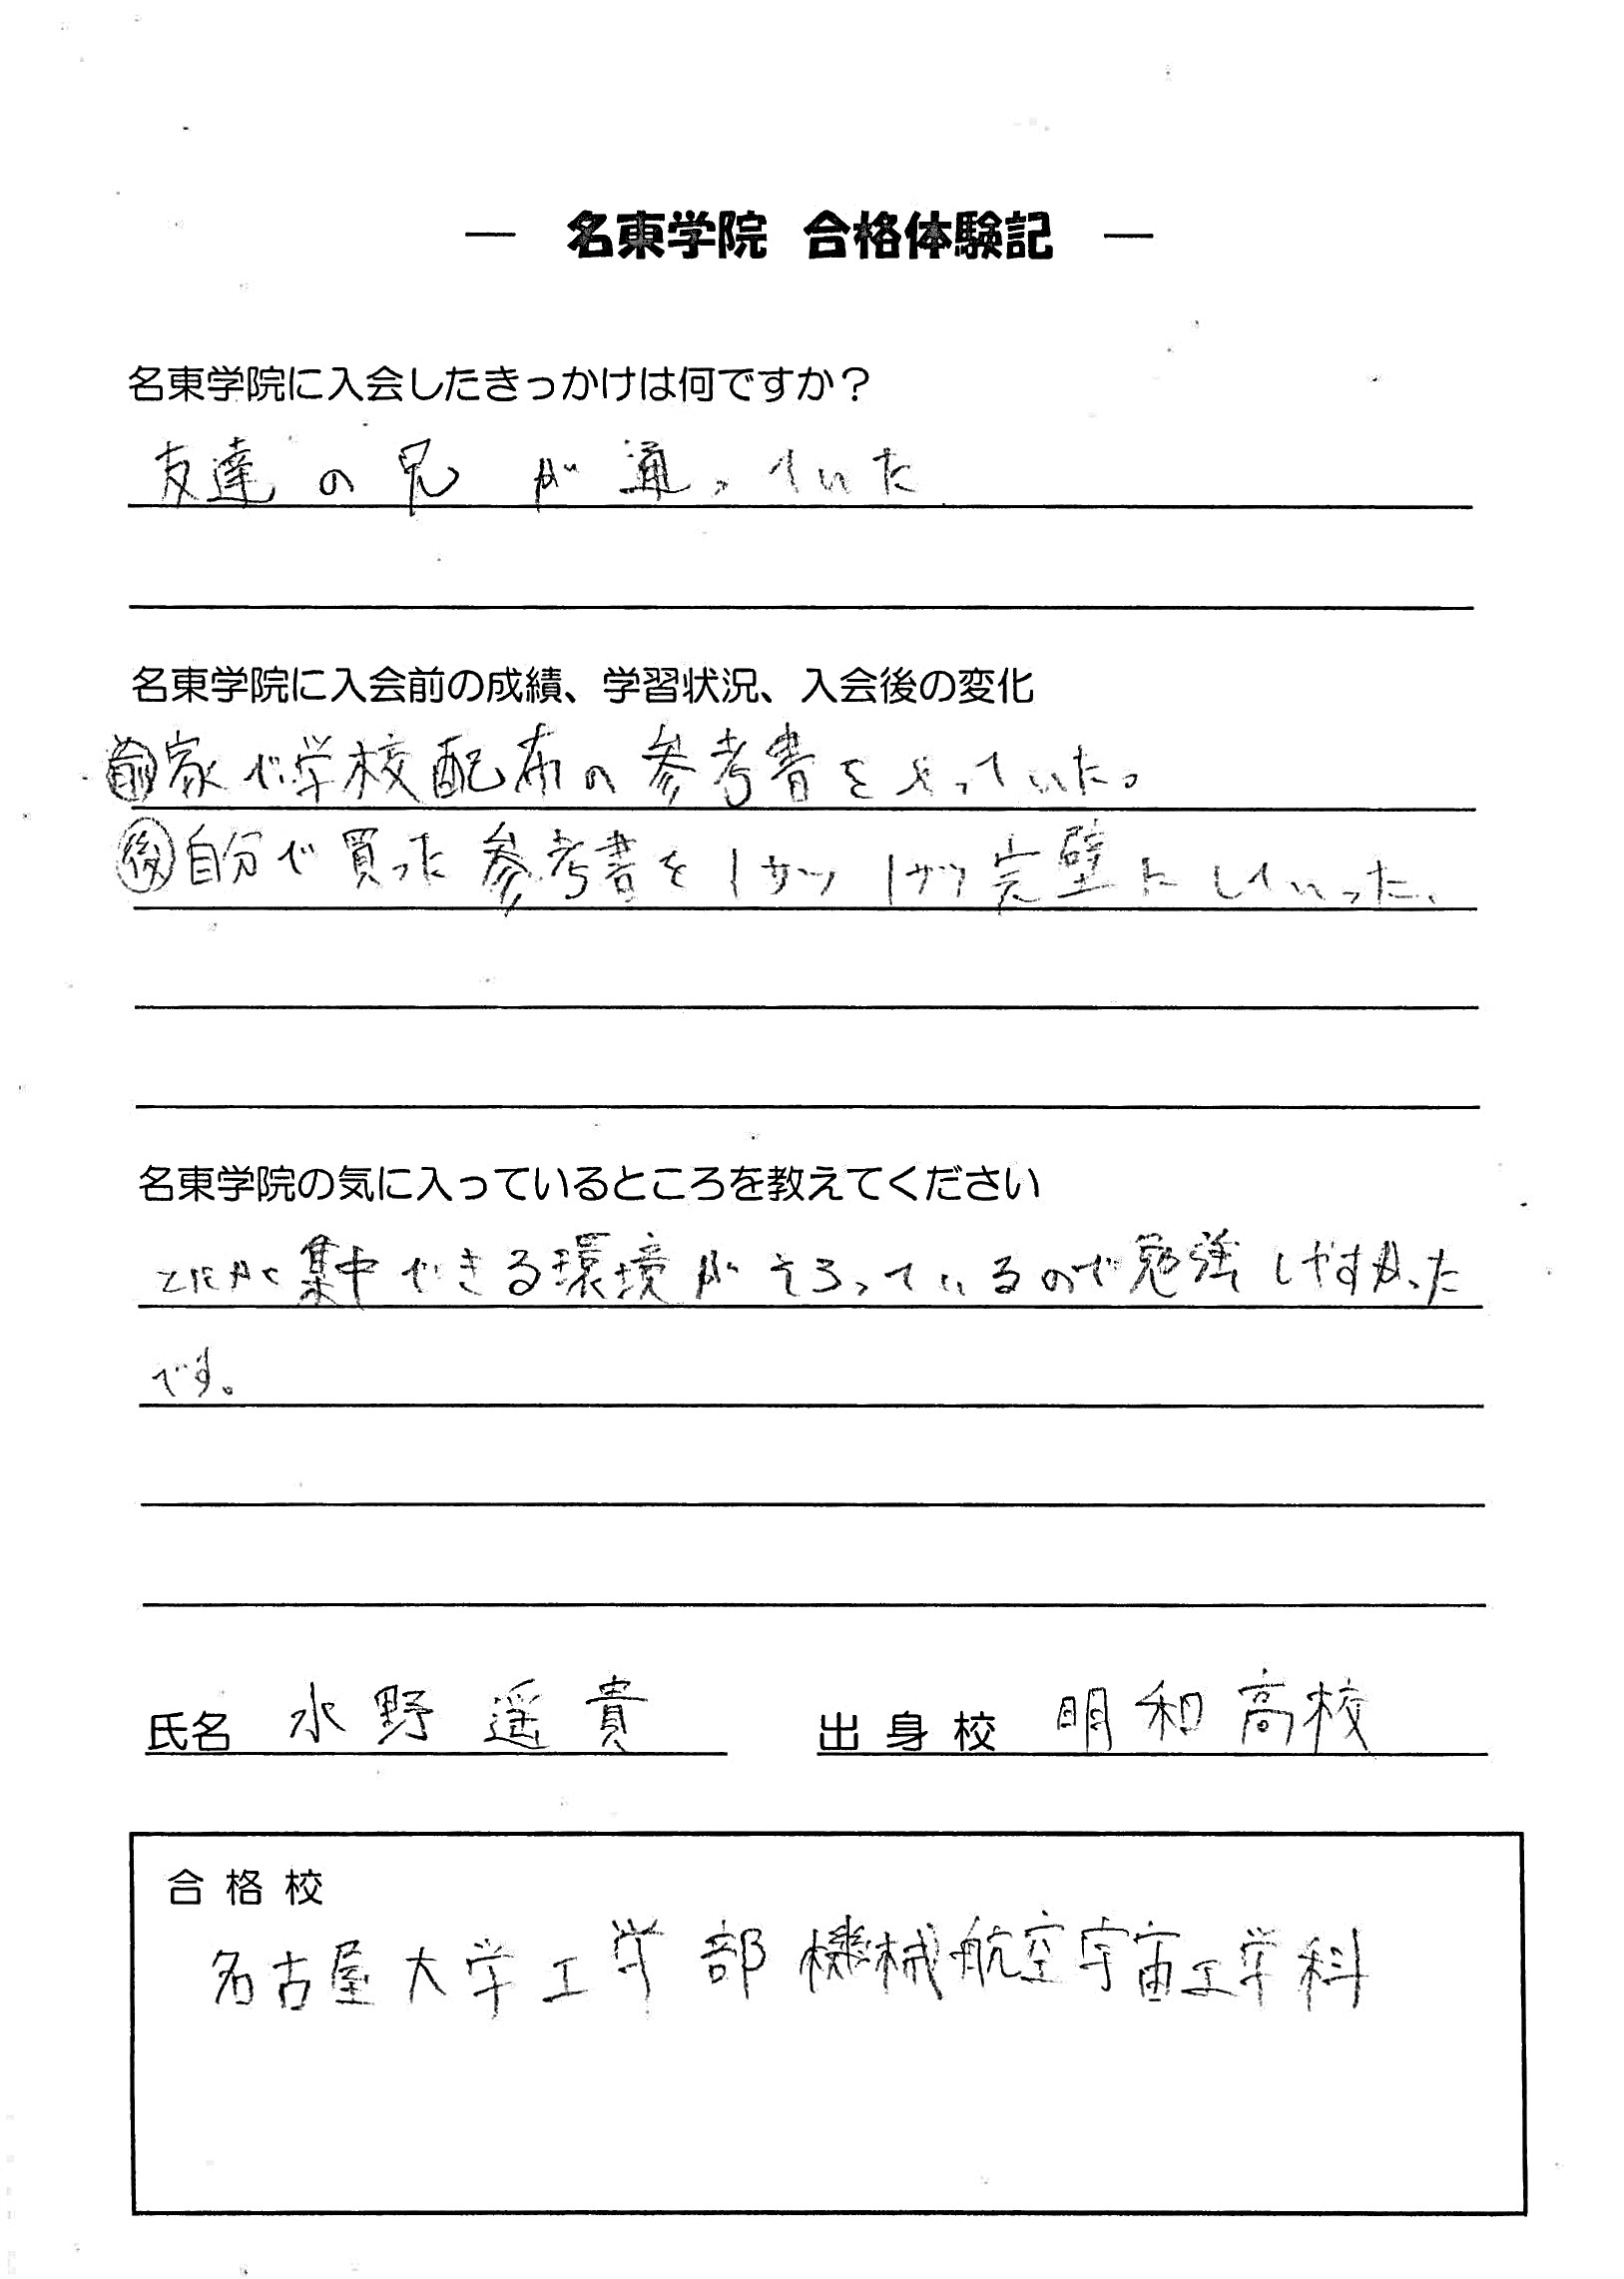 ― 名東学院 合格体験記 ―
名東学院に入会したきっかけは何ですか？
友達の兄が通っていた
名東学院に入会前の成績、学習状況、入会後の変化
前 家で学校配布の参考書をやっていた。
後 自分で買った参考書を1サツ1サツ完璧にしていった。
名東学院の気に入っているところを教えてください
とにかく集中できる環境がそろっているので勉強しやすかった
です。
氏名 水野遥貴 出身校 明和高校
合格校
名古屋大学工学部機械航空宇宙工学科